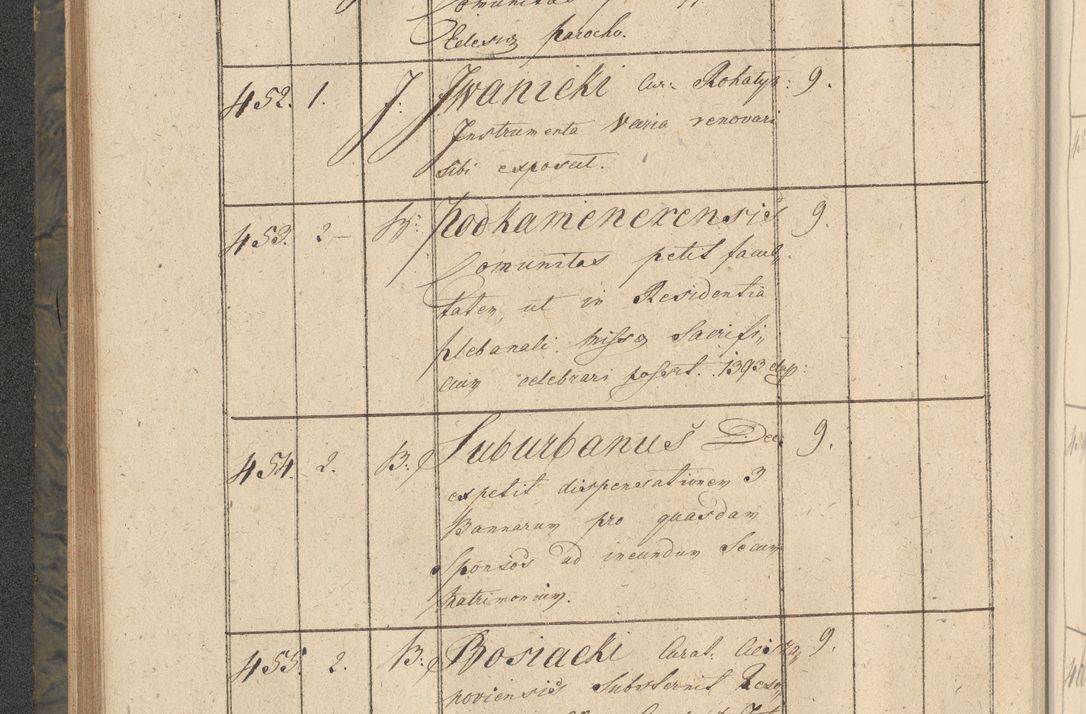 Edesiæ parocho.
452. 1. J. Iwanicki Cur. Rohatyn: 9.
Instrumenta varia renovari
sibi exposcit.
453. 2 — Podkamenecensis 9.
Comunitas petit facul,
tatem, ut in Residentia
plebanali Missæ Sacrifi,,
cium celebrari possit. 1393
454. 2. B. Suburbanus Dec 9.
expetit dispensationem 3
Bannorum pro quasdam
Sponsos ad ineundum Secum
Matrimonium.
455. 2. B. Bosiacki Curat. 9.
poviensis Substernit